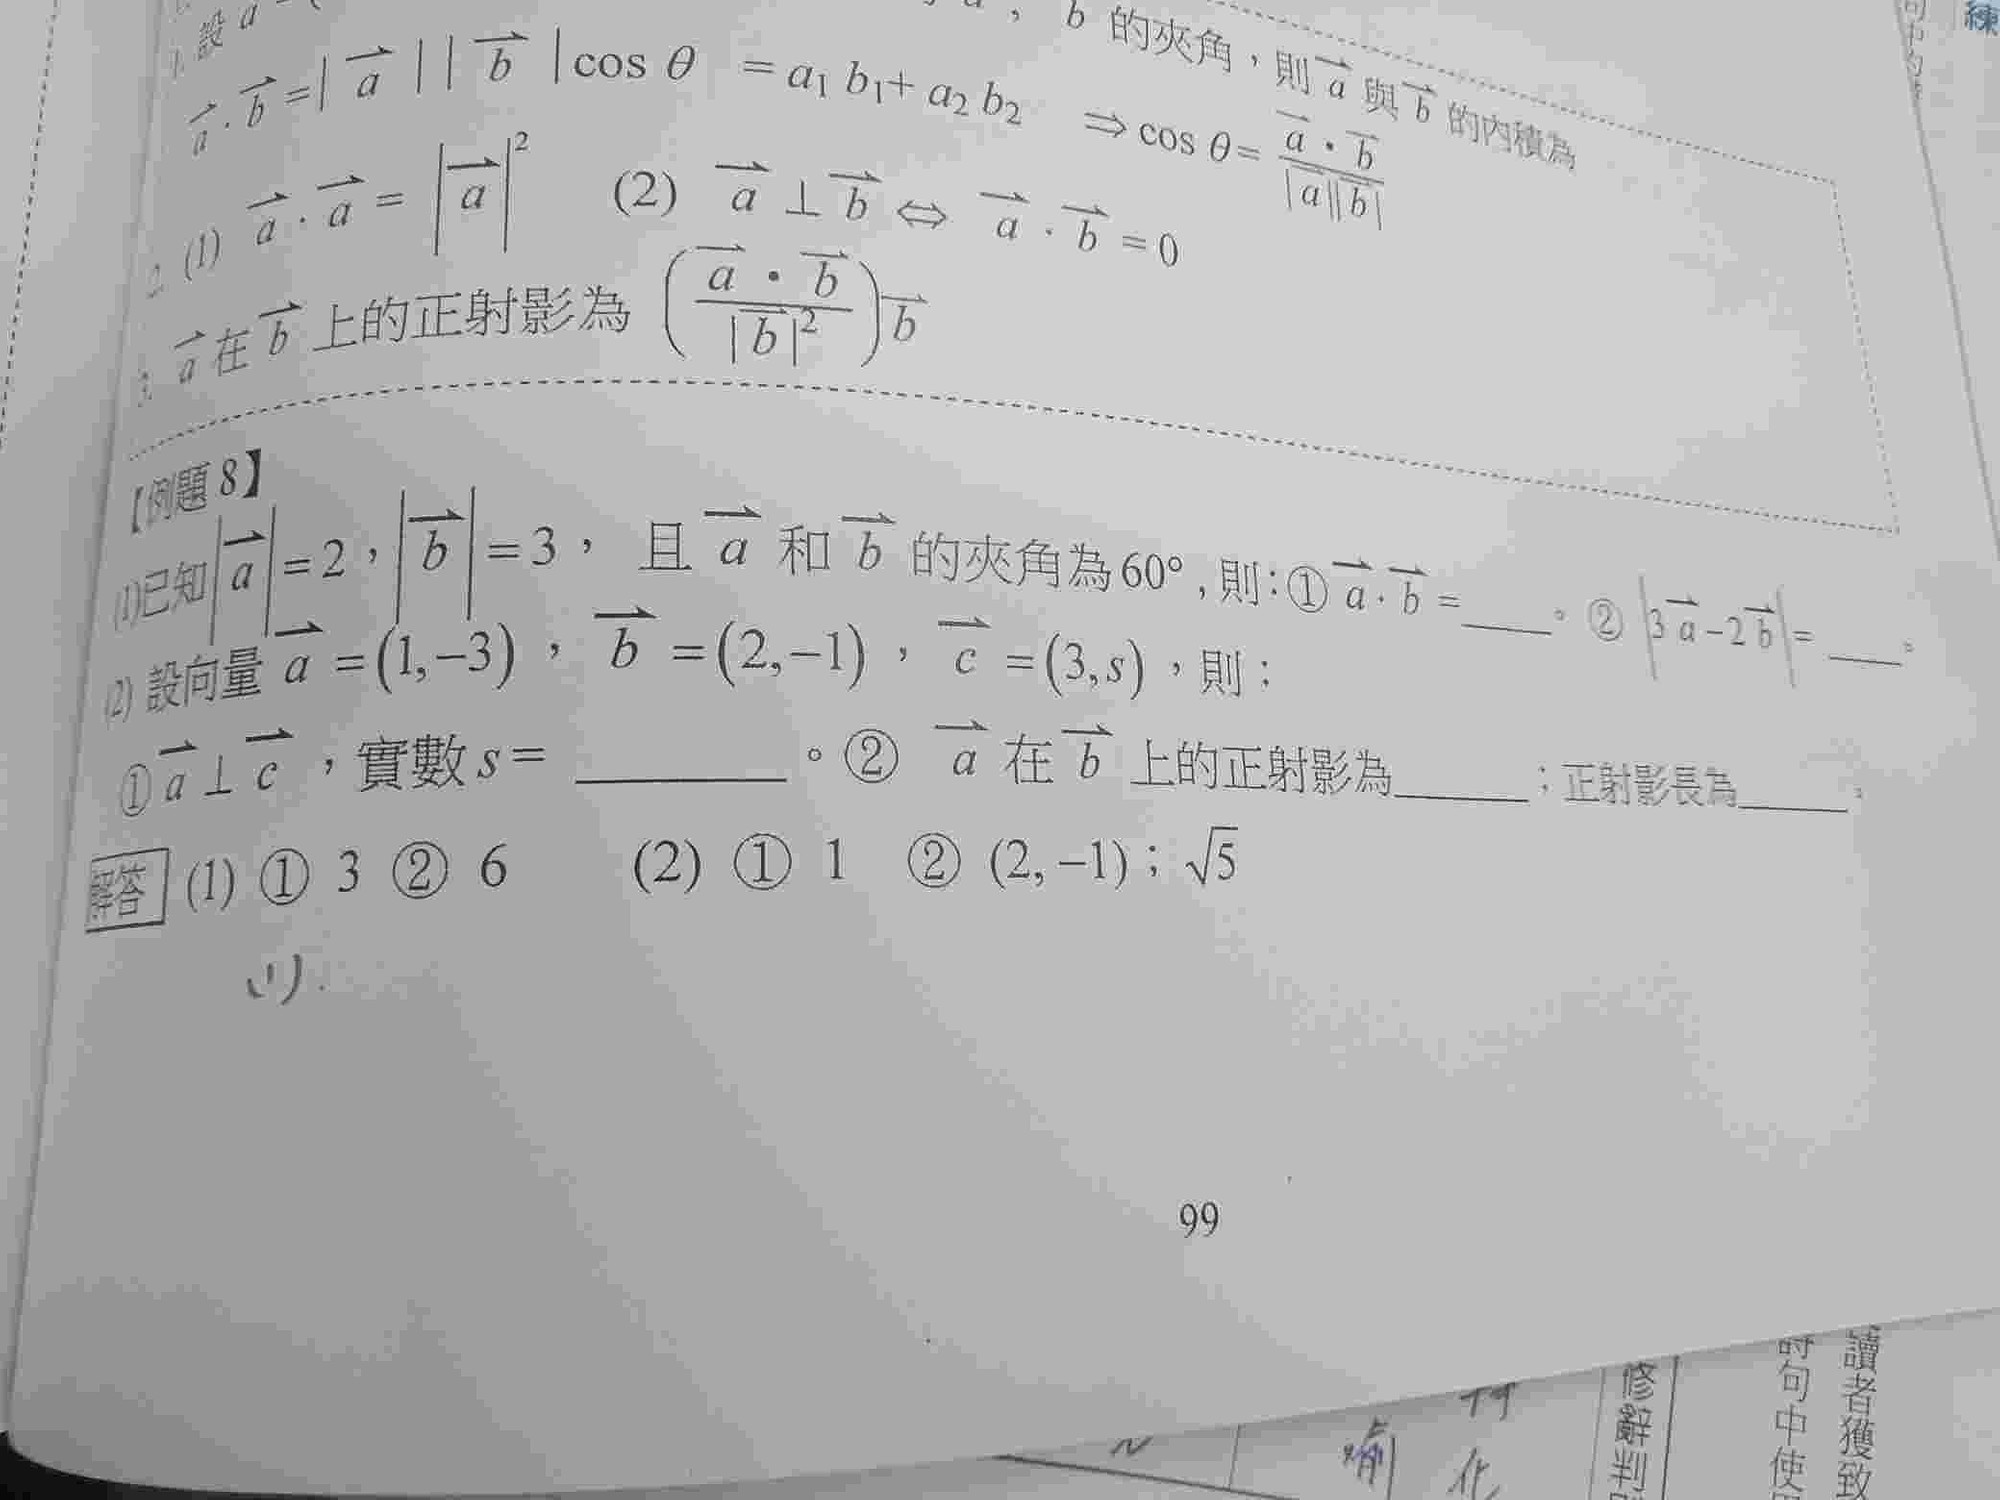 1. 設 a
a , b 的夾角，則 a 與 b 的內積為
a · b = | a | | b | cos θ = a₁ b₁ + a₂ b₂ ⇒ cos θ = (a · b) / (|a||b|)
2. (1) a · a = | a |² (2) a ⊥ b ⇔ a · b = 0
3. a 在 b 上的正射影為 ( (a · b) / |b|² ) b
【例題 8】
(1)已知 | a | = 2，| b | = 3， 且 a 和 b 的夾角為60°,則:① a · b = ____。② |3 a − 2 b | = ____。
(2) 設向量 a = (1,−3)， b = (2,−1)， c = (3,s)，則：
① a ⊥ c ，實數 s = ________。② a 在 b 上的正射影為______；正射影長為_____。
解答 (1) ① 3 ② 6 (2) ① 1 ② (2, −1)；√5
(1).
99
練
句中
修辭判
詩句中使
讀者獲致
喻
化